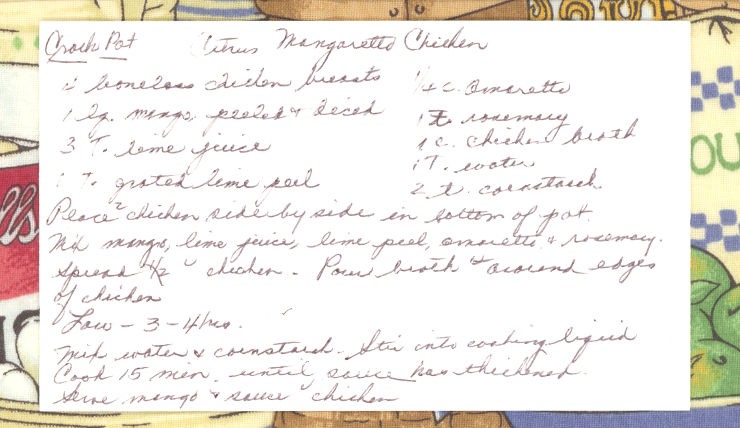 Crock Pot Citrus Mangaretto Chicken
4 boneless chicken breasts
1 lg. mango peeled & diced
3 T. lime juice
1 T. grated lime peel
1/4 c. Amaretto
1 t. rosemary
1 c. chicken broth
1 T. water
2 t. cornstarch
Place 2 chicken side by side in bottom of pot.
Mix mango, lime juice, lime peel, amaretto & rosemary.
Spread 1/2 " chicken. Pour broth around edges
of chicken
Low - 3-4 hrs.
Mix water & cornstarch. Stir into cooking liquid
Cook 15 min. until sauce has thickened.
Serve mango & sauce chicken
OU